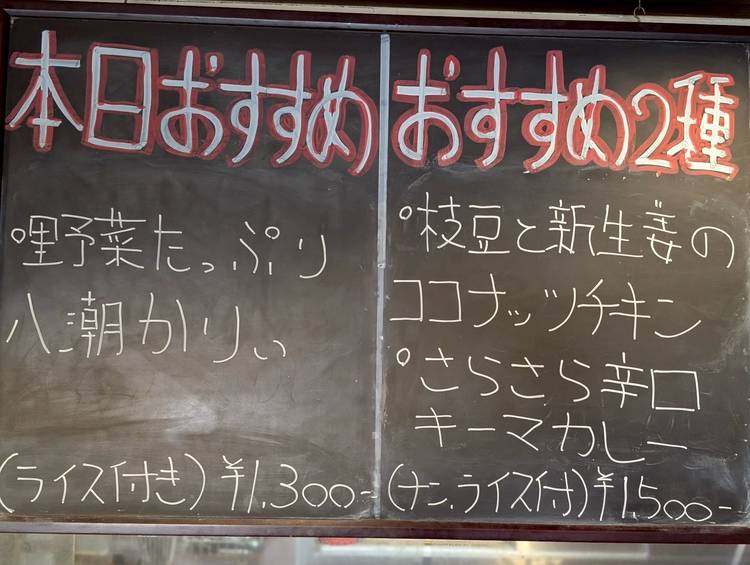 本日おすすめ
○野野菜たっぷり
八潮かりぃ
(ライス付き)¥1,300-
おすすめ2種
○枝豆と新生姜の
ココナッツチキン
○さらさら辛口
キーマカレー
(ナン、ライス付)¥1,500-